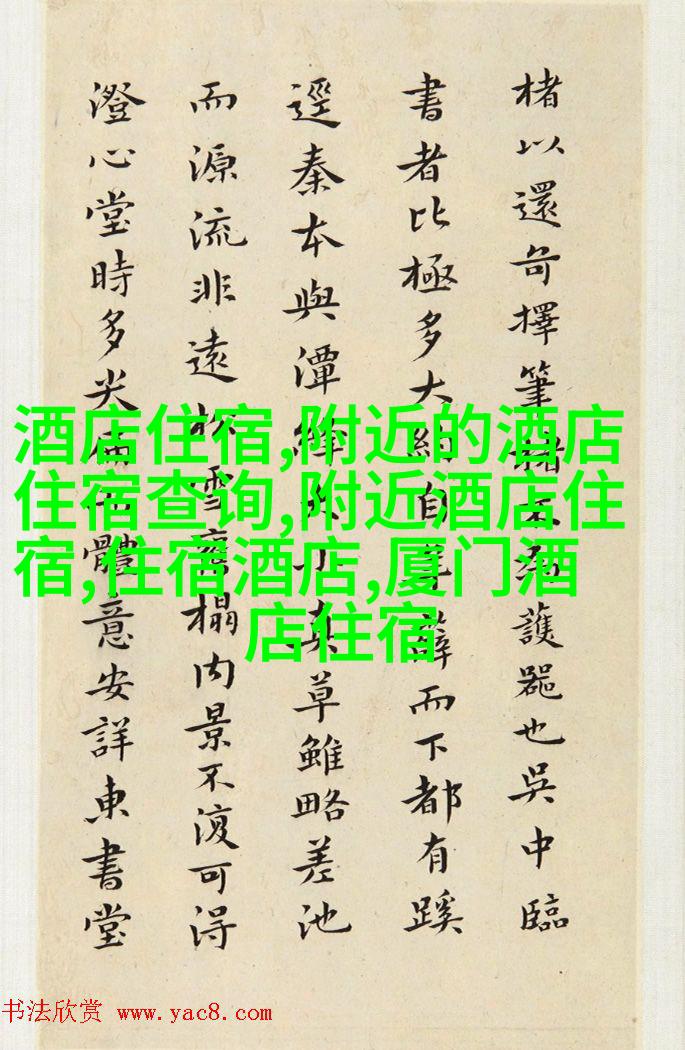 楮以還奇擇筆楮不
護器也吳中臨
書者比極多大約自
薛而下都有蹊
逕秦本與潭絳
真草雖略差池
而源流非遠松雪齋榻内景不復可得
澄心堂時多尖
體意安詳東書堂
酒店住宿,附近的酒店
住宿查询,附近酒店住
宿,住宿酒店,厦门酒
店住宿
书法欣赏 www.yac8.com